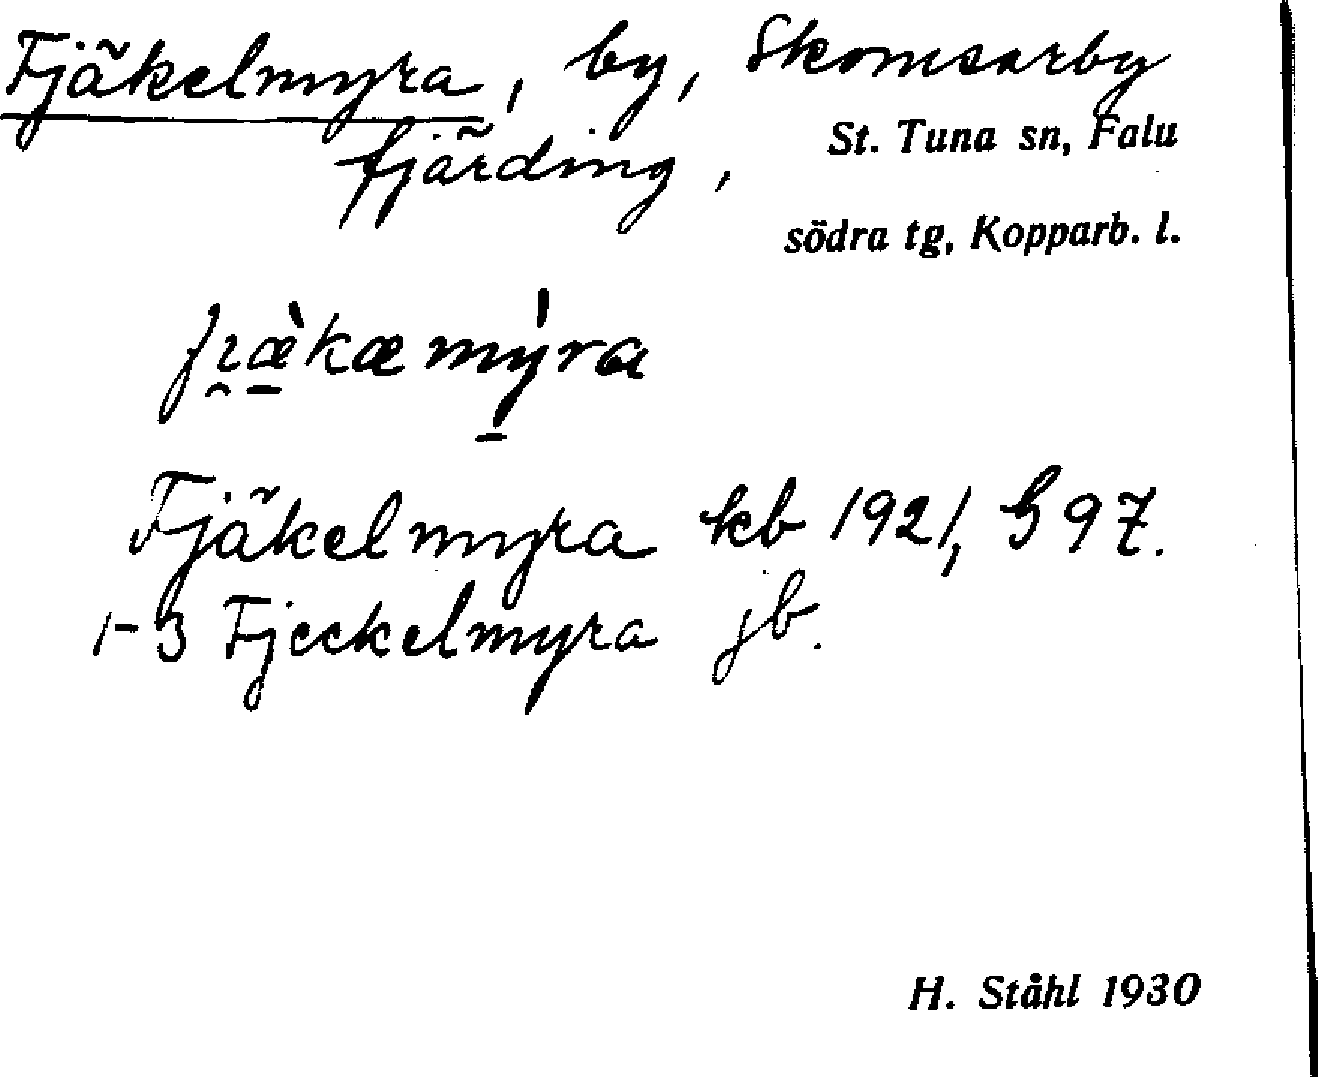 Fjäkelmyra, by, Skomsarby
fjärding, St. Tuna sn, Falu
södra tg, Kopparb. l.
fi̯æ̠̀kæmy̠̍ra
Fjäkelmyra kb 1921, S 97.
1-3 Fjeckelmyra jb.
H. Ståhl 1930